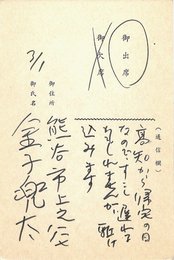 御出席
御欠席
(通信欄)
高知から帰宅の日
なので、すこし遅れる
かもしれませんが駆け
込みます
御住所
熊谷市上之
御氏名
金子兜太
3/1